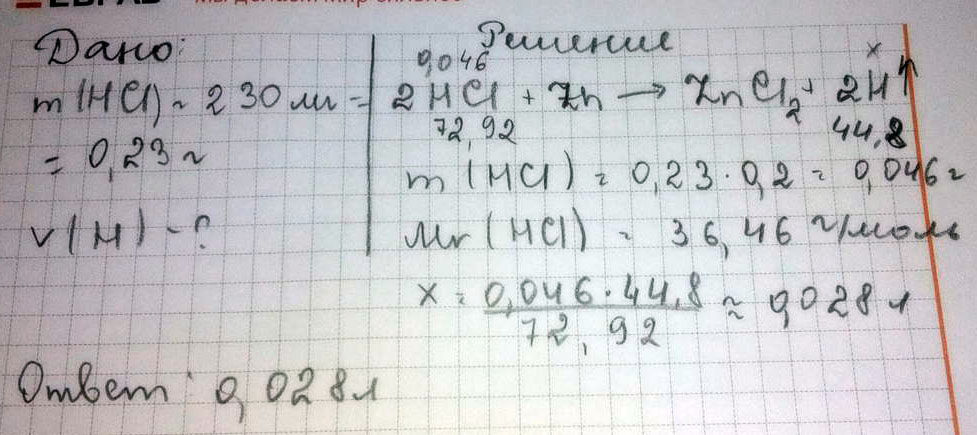 Дано:
m(HCl) = 230 мг =
= 0,23 г
V(H) - ?
Решение
0,046 x
2HCl + Zn → ZnCl2 + 2H↑
72,92 44,8
m(HCl) = 0,23 · 0,2 = 0,046 г
Mr(HCl) = 36,46 г/моль
x = 0,046 · 44,8 ≈ 0,028 л
72,92
Ответ: 0,028 л